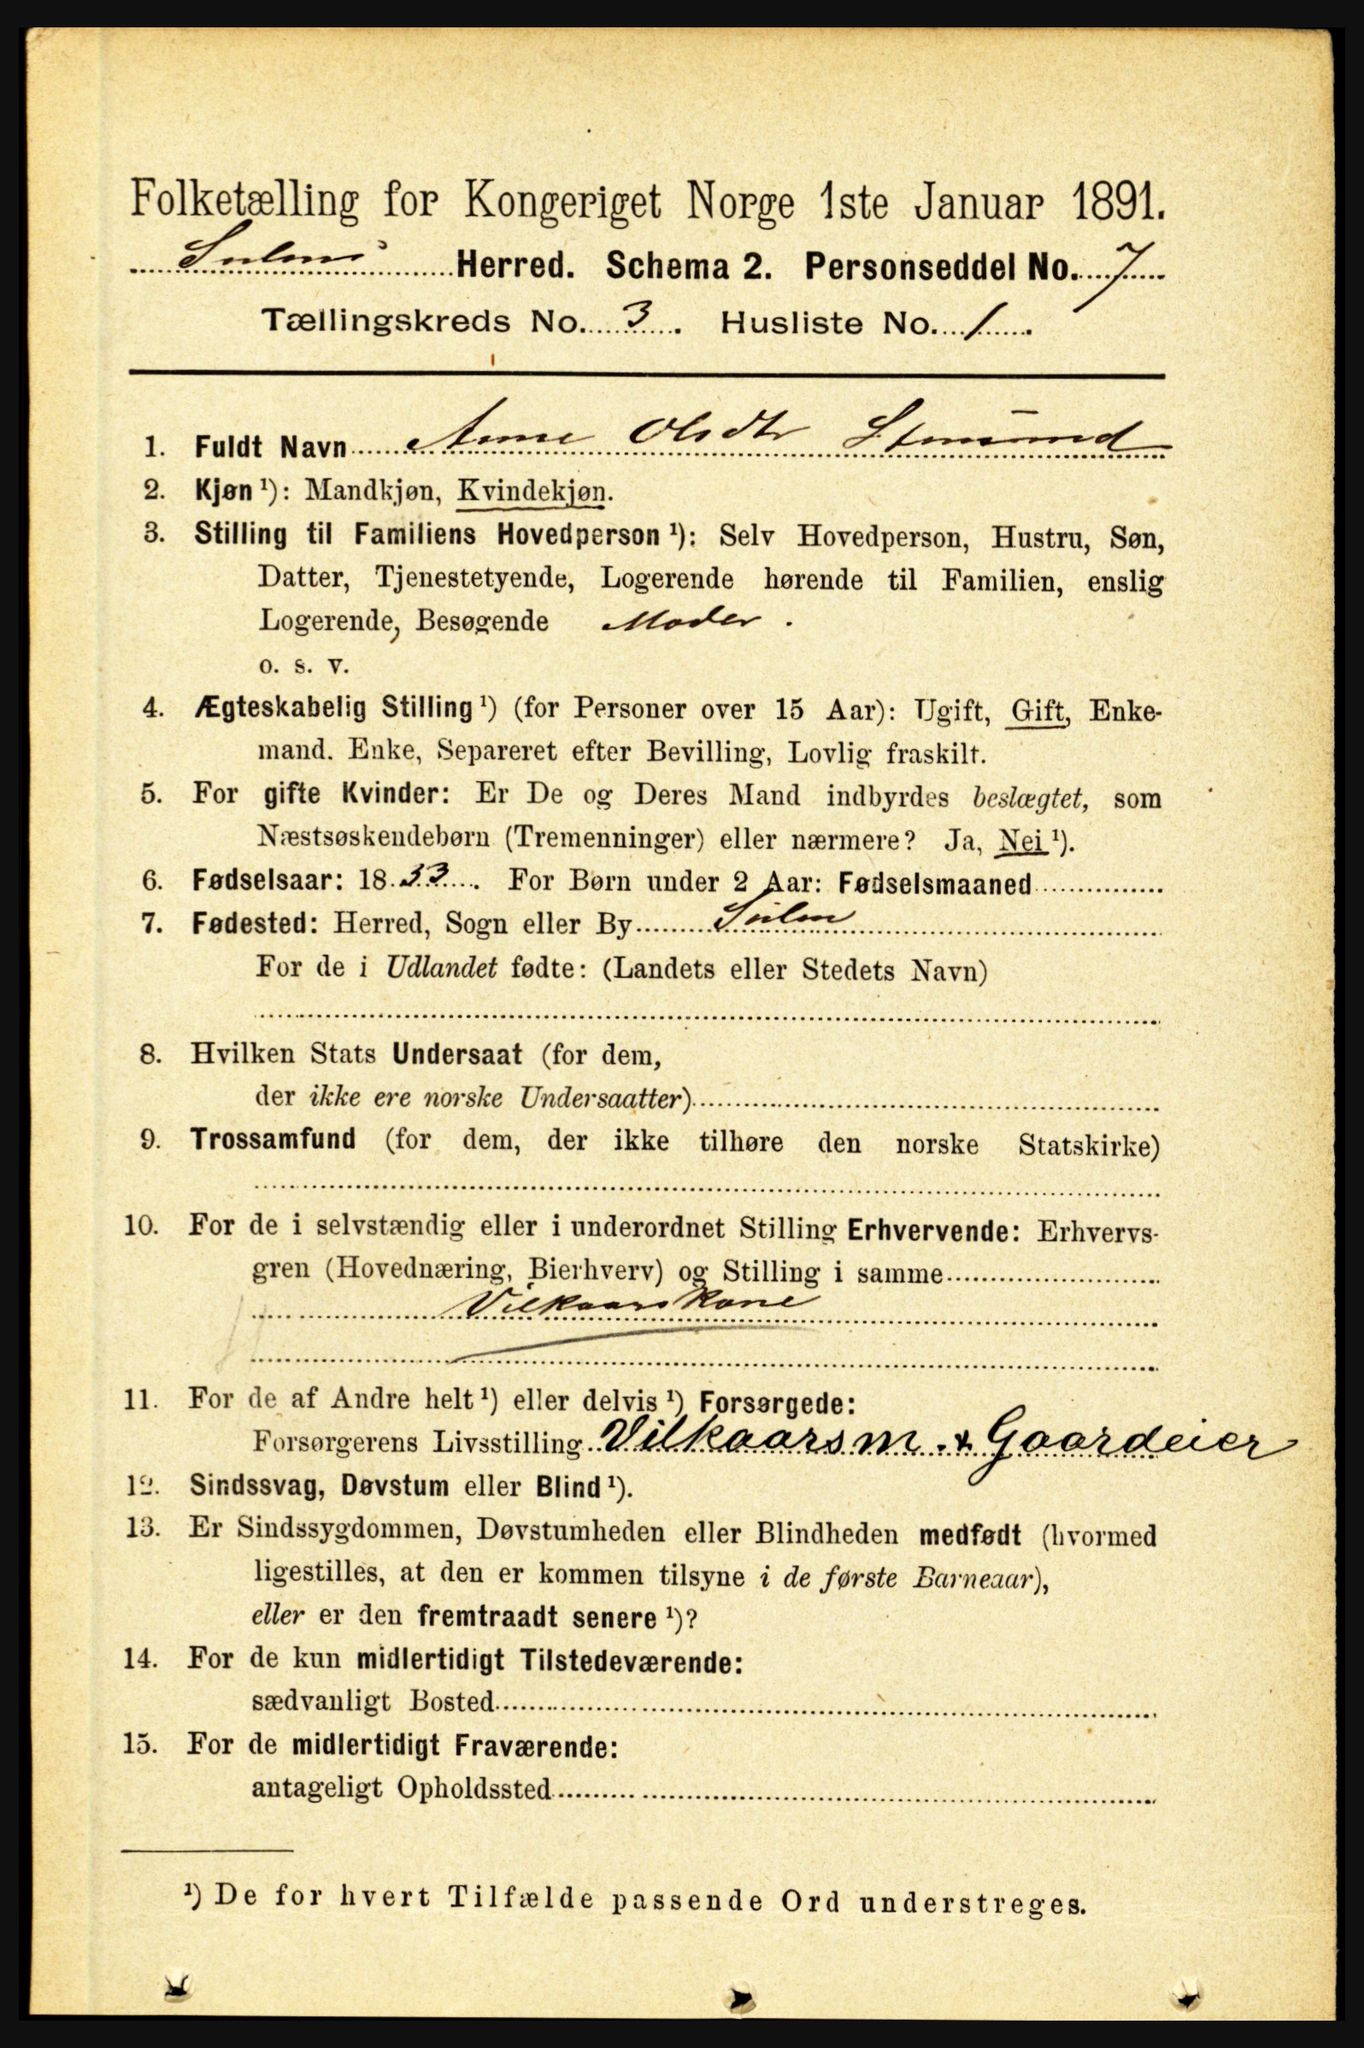 Folketælling for Kongeriget Norge 1ste Januar 1891.
Herred. Schema 2. Personseddel No. 7
Tællingskreds No. 3. Husliste No. 1.
1. Fuldt Navn Anne Olsdtr
2. Kjøn ¹): Mandkjøn, Kvindekjøn.
3. Stilling til Familiens Hovedperson ¹): Selv Hovedperson, Hustru, Søn,
Datter, Tjenestetyende, Logerende hørende til Familien, enslig
Logerende, Besøgende Moder.
o. s. v.
4. Ægteskabelig Stilling ¹) (for Personer over 15 Aar): Ugift, Gift, Enke-
mand. Enke, Separeret efter Bevilling, Lovlig fraskilt.
5. For gifte Kvinder: Er De og Deres Mand indbyrdes beslægtet, som
Næstsøskendebørn (Tremenninger) eller nærmere? Ja, Nei ¹).
6. Fødselsaar: 1833. For Børn under 2 Aar: Fødselsmaaned
7. Fødested: Herred, Sogn eller By
For de i Udlandet fødte: (Landets eller Stedets Navn)
8. Hvilken Stats Undersaat (for dem,
der ikke ere norske Undersaatter)
9. Trossamfund (for dem, der ikke tilhøre den norske Statskirke)
10. For de i selvstændig eller i underordnet Stilling Erhvervende: Erhvervs-
gren (Hovednæring, Bierhverv) og Stilling i samme
Vilkaarskone
11. For de af Andre helt ¹) eller delvis ¹) Forsørgede:
Forsørgerens Livsstilling Vilkaarsm. & Gaardeier
12. Sindssvag, Døvstum eller Blind ¹).
13. Er Sindssygdommen, Døvstumheden eller Blindheden medfødt (hvormed
ligestilles, at den er kommen tilsyne i de første Barneaar),
eller er den fremtraadt senere ¹)?
14. For de kun midlertidigt Tilstedeværende:
sædvanligt Bosted
15. For de midlertidigt Fraværende:
antageligt Opholdssted
¹) De for hvert Tilfælde passende Ord understreges.